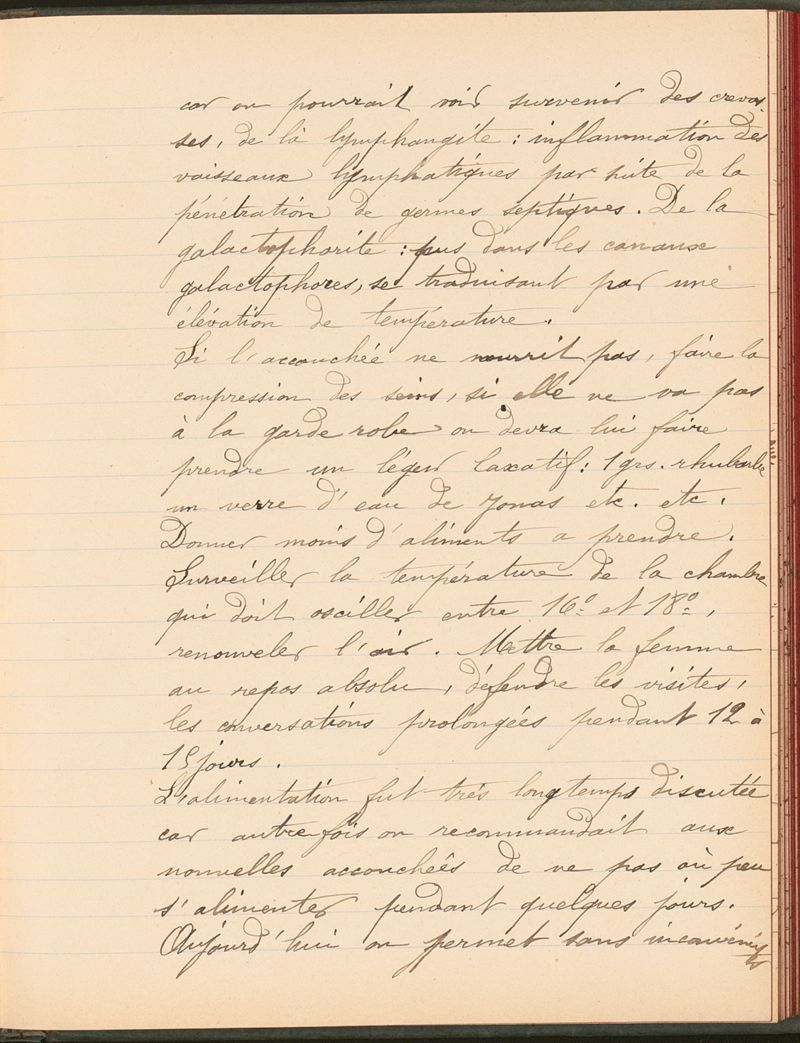 car on pourrait voir survenir des crevas-
ses, de là lymphangite : inflammation des
vaisseaux lymphatiques par suite de la
pénétration de germes septiques. De la
galactophorite : pus dans les canaux
galactophores, se traduisant par une
élévation de température.
Si l'accouchée ne nourrit pas, faire la
compression des seins, si elle ne va pas
à la garde robe on devra lui faire
prendre un léger laxatif : 1 grs. rhubarbe
un verre d'eau de Jonas etc. etc.
Donner moins d'aliments a prendre.
Surveiller la température de la chambre
qui doit osciller entre 16° et 18°,
renouveler l'air. Mettre la femme
au repos absolu, défendre les visites,
les conversations prolongées pendant 12 à
15 jours.
L'alimentation fut très longtemps discutée
car autrefois on recommandait aux
nouvelles accouchées de ne pas où peu
s'alimenter pendant quelques jours.
Aujourd'hui on permet sans inconvénients